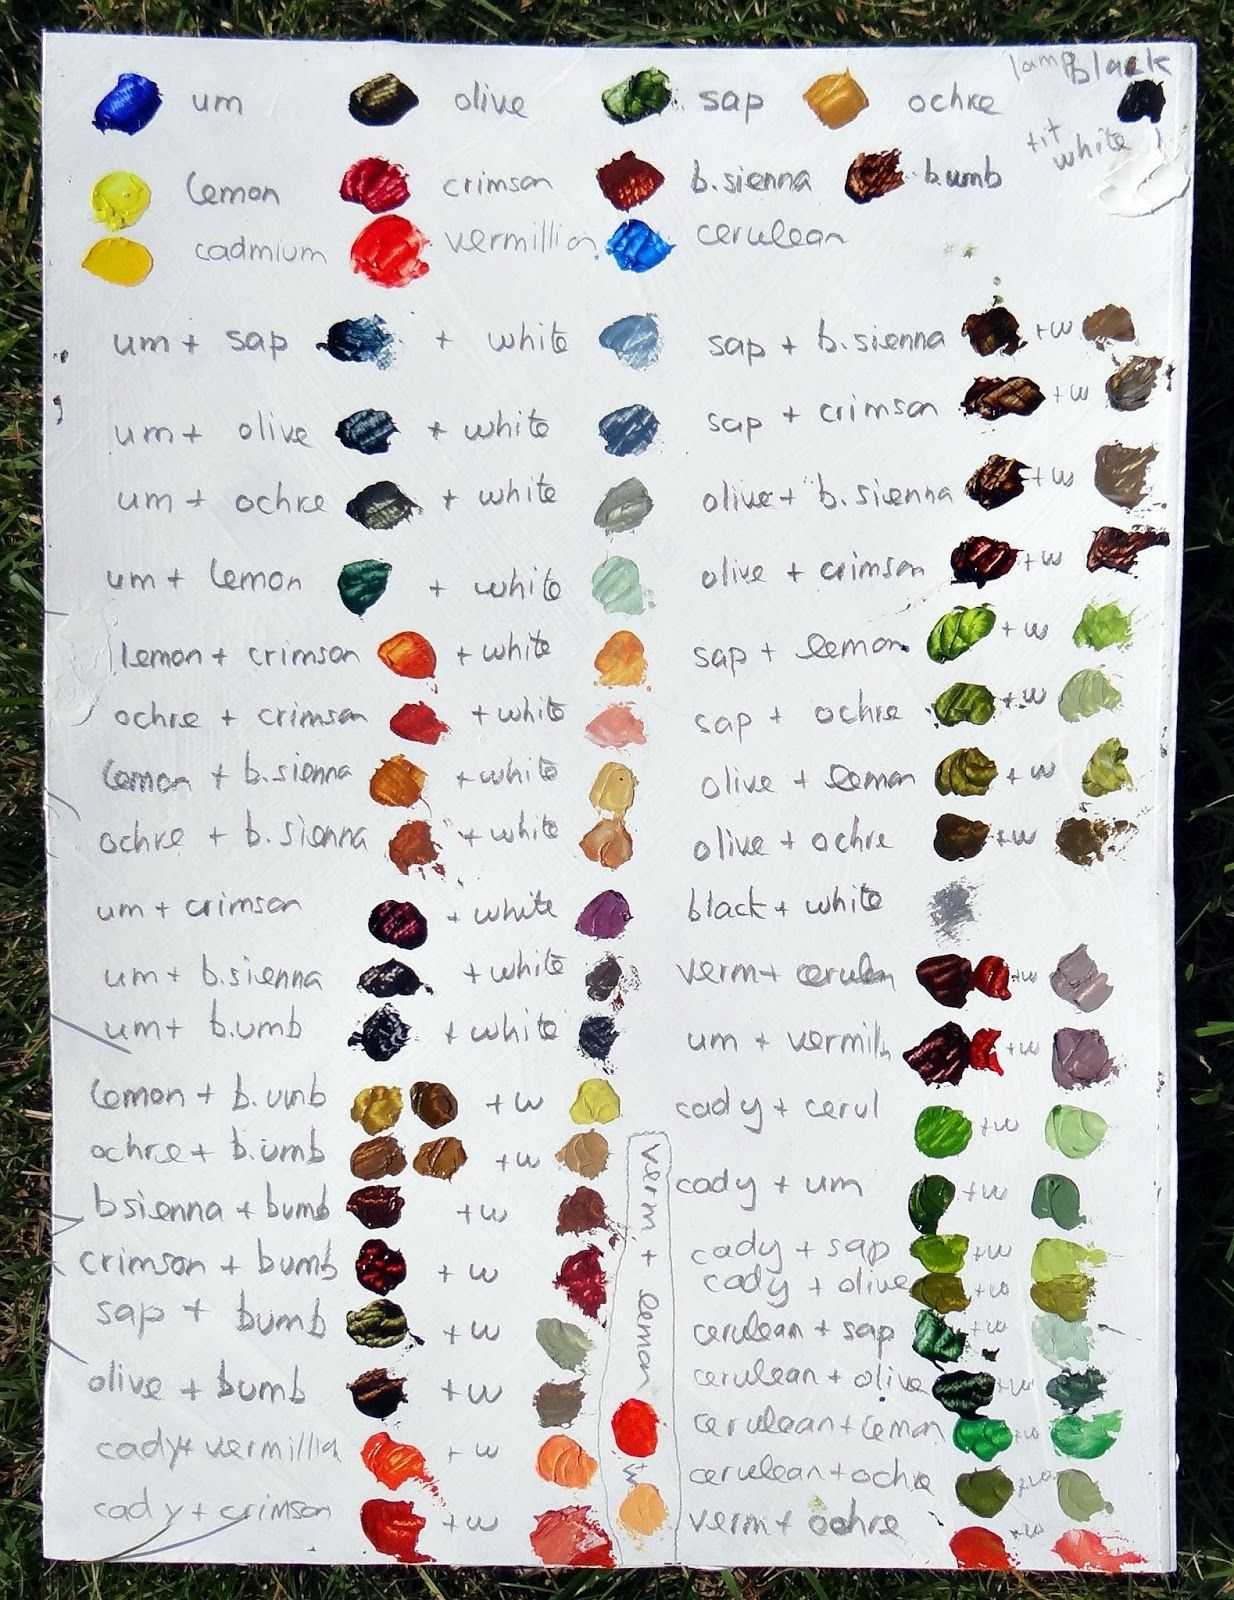 um olive sap ochre lamp black
tit white
lemon crimson b.sienna b.umb
cadmium vermillion cerulean
um + sap + white
um + olive + white
um + ochre + white
um + lemon + white
lemon + crimson + white
ochre + crimson + white
lemon + b.sienna + white
ochre + b.sienna + white
um + crimson + white
um + b.sienna + white
um + b.umb + white
lemon + b.umb + w
ochre + b.umb + w
bsienna + bumb + w
crimson + bumb + w
sap + bumb + w
olive + bumb + w
cady + vermillia + w
cady + crimson + w
verm + lemon
+w
sap + b.sienna + w
sap + crimson + w
olive + b.sienna + w
olive + crimson + w
sap + lemon + w
sap + ochre + w
olive + lemon + w
olive + ochre + w
black + white
verm + cerulen + w
um + vermilh + w
cady + cerul + w
cady + um + w
cady + sap + w
cady + olive + w
cerulean + sap + w
cerulean + olive + w
cerulean + lemon + w
cerulean + ochre + w
verm + ochre + w